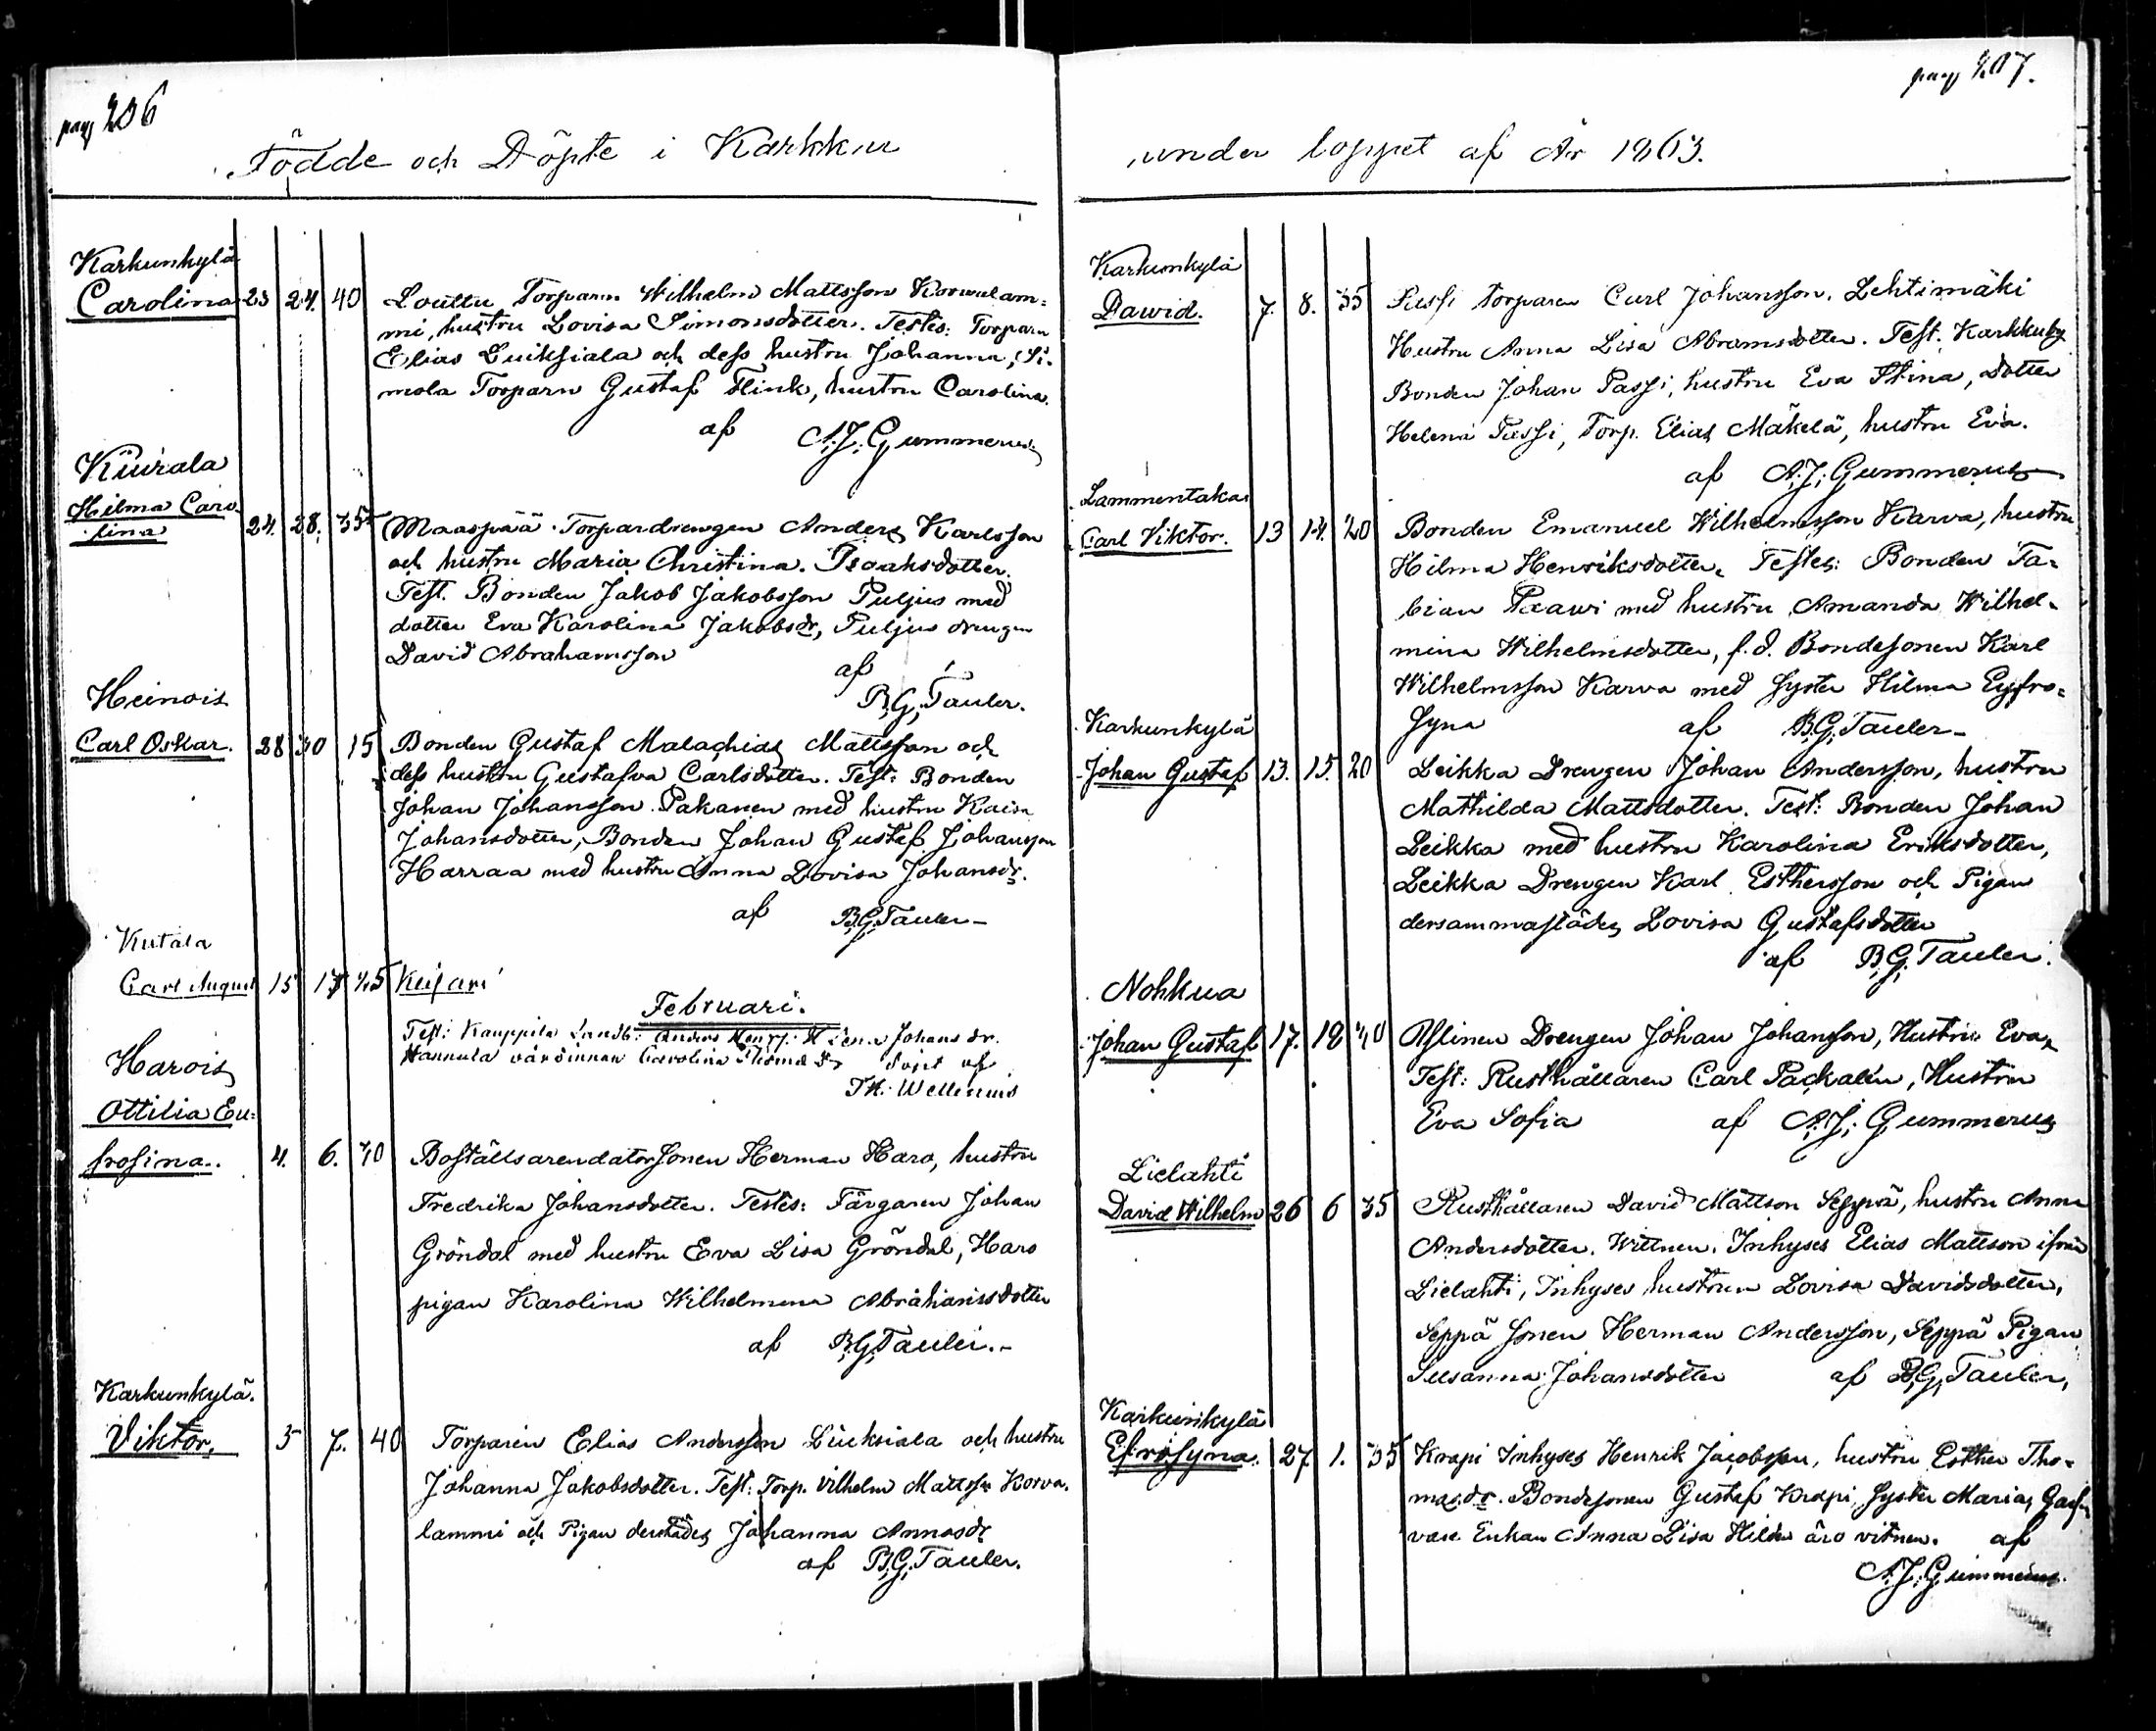 pag 206
Födde och Döpte i Karkku
Karkunkylä
Carolina 23 24. 40 Louttu Torparn Wilhelm Mattsson Korwulam=
mi, hustru Lovisa Simonsdotter. Testis: Torparn
Elias Luiksiala och dess hustru Johanna, Si=
mola Torparn Gustaf Flink, hustru Carolina.
af A.J. Gummerus
Kiurala
Hilma Caro=
lina 24. 28. 35 Maaspää Torpardrengen Anders Karlsson
och hustru Maria Christina Isaaksdotter.
Test. Bonden Jakob Jakobsson Puljus med
dotter Eva Karolina Jakobsdr, Puljus drengen
David Abrahamsson af
B.G. Tauler.
Heinois
Carl Oskar. 28 30 15 Bonden Gustaf Malachias Mattsson och
dess hustru Gustafva Carlsdotter. Test: Bonden
Johan Johansson Pakanen med hustru Kaisa
Johansdotter, Bonden Johan Gustaf Johansson
Harraa med hustru Anna Lovisa Johansdr.
af B.G. Tauler
Kutala
Carl August 15 17 45 Keijari
Februari.
Test: Kauppila Landb: Anders Lena Johans dr.
Hannula värdinnan Carolina Thomas Dr Döpt af
Th: Wellenius
Harois
Ottilia Eu=
frosina. 4. 6. 40 Boställsarendatorsonen Herman Haro, hustru
Fredrika Johansdotter. Testis: Färgaren Johan
Gröndal med hustru Eva Lisa Gröndal, Haro
pigan Karolina Wilhelmina Abrahamsdotter
af B.G. Tauler.
Karkunkylä.
Viktor. 5 7. 40 Torparen Elias Andersson Luiksiala och hustru
Johanna Jakobsdotter. Test: Torp. Vilhelm Mattsson Korva=
lammi och Pigan derstädes Johanna Annasdr
af B.G. Tauler.
pag 207.
under loppet af År 1863.
Karkunkylä
Dawid. 7. 8. 35 Passi torparen Carl Johansson Lehtimäki
Hustru Anna Lisa Abramsdotter. Test. Karkkuby
Bonden Johan Passi, hustru Eva Stina, dotter
Helena Passi, Torp. Elias Mäkelä, hustru Eva.
af A.J. Gummerus
Lammentaka
Carl Viktor. 13 14. 20 Bonden Emanuel Wilhelmsson Karva, hustru
Hilma Henriksdotter. Testes: Bonden Fa=
bian Paawi med hustru Amanda Wilhel=
mina Wilhelmsdotter, f.d. Bondesonen Karl
Wilhelmsson Karva med syster Hilma Eufro=
syna af B.G. Tauler
Karkunkylä
Johan Gustaf 13. 15. 20 Leikka Drengen Johan Andersson, hustru
Mathilda Mattsdotter. Test: Bonden Johan
Leikka med hustru Karolina Eriksdotter,
Leikka Drengen Karl Esthersson och Pigan
dersammastädes Lovisa Gustafsdotter
af B.G. Tauler.
Nohkua
Johan Gustaf 17. 18 40 Uslinen Drengen Johan Johansson, Hustru Eva,
Test: Rusthållaren Carl Packalén, Hustru
Eva Sofia af A.J. Gummerus
Lielahti
David Wilhelm 26 6 35 Rusthållaren David Mattson Seppä, hustru Anna
Andersdotter. Wittnen. Inhyses Elias Mattson ifrån
Lielahti, Inhyses hustrun Lovisa Davidsdotter,
Seppä sonen Herman Andersson, Seppä Pigan
Susanna Johansdotter af B.G. Tauler,
Karkunkylä
Efrosyna. 27 1. 35 Krapi Inhyses Henrik Jacobsson, hustru Esther Tho=
masdr. Bondesonen Gustaf Krapi, Syster Maria,
Enkan Anna Lisa Hilden äro vitnen. af
A.J. Gummerus.